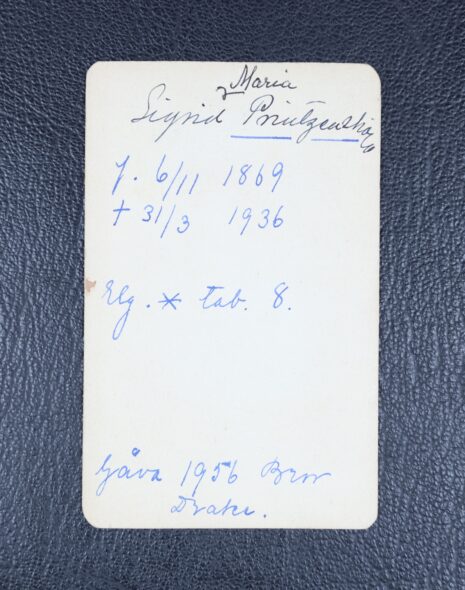 Maria
Sigrid Printzensköld
f. 6/11 1869
+ 31/3 1936
Elg. * tab. 8.
Gåva 1956 Bror
Drake.